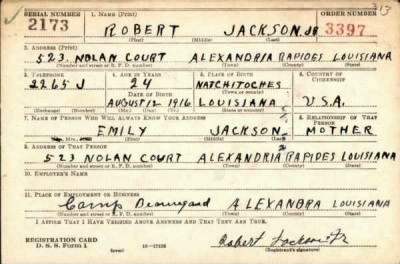 SERIAL NUMBER 1. NAME (Print) ORDER NUMBER 313
2173 ROBERT JACKSON JR 3397
(First) (Middle) (Last)
2. ADDRESS (Print)
523 NOLAN COURT ALEXANDRIA RAPIDES LOUISIANA
(Number and street or R. F. D. number) (Town) (County) (State)
3. TELEPHONE 4. AGE IN YEARS 5. PLACE OF BIRTH 6. COUNTRY OF CITIZENSHIP
2265 J 24 NATCHITOCHES
DATE OF BIRTH (Town or county)
AUGUST 12 1916 LOUISIANA U.S.A.
(Exchange) (Number) (Mo.) (Day) (Yr.) (State or country)
7. NAME OF PERSON WHO WILL ALWAYS KNOW YOUR ADDRESS 8. RELATIONSHIP OF THAT PERSON
EMILY JACKSON MOTHER
(Mr., Mrs., Miss) (First) (Middle) (Last)
9. ADDRESS OF THAT PERSON
523 NOLAN COURT ALEXANDRIA RAPIDES LOUISIANA
(Number and street or R. F. D. number) (Town) (County) (State)
10. EMPLOYER'S NAME
11. PLACE OF EMPLOYMENT OR BUSINESS
Camp Beauregard ALEXANDRA LOUISIANA
(Number and street or R. F. D. number) (Town) (County) (State)
I AFFIRM THAT I HAVE VERIFIED ABOVE ANSWERS AND THAT THEY ARE TRUE.
REGISTRATION CARD
D. S. S. Form 1 (over) 16—17105 Robert Jackson Jr
(Registrant's signature)